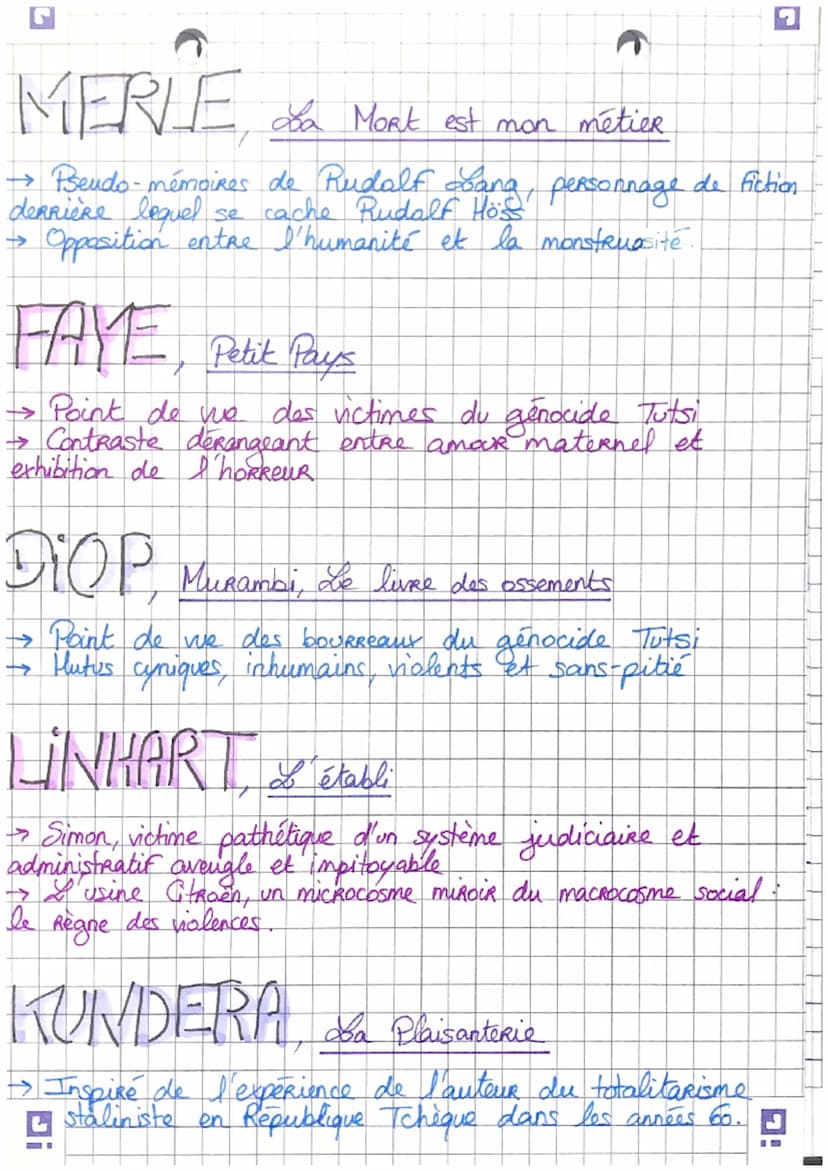 MERLE, La Mort est mon métier
→ Pseudo-mémoires de Rudolf Lang, personnage de fiction
derrière lequel se cache Rudolf Höss
→ Opposition entre l'humanité et la monstruosité.
FAYE, Petit Pays
→ Point de vue des victimes du génocide Tutsi
→ Contraste dérangeant entre amour maternel et
exhibition de l'horreur
DiOP, Murambi, Le livre des ossements
→ Point de vue des bourreaux du génocide Tutsi
→ Hutus cyniques, inhumains, violents et sans-pitié
LiNHART, L'établi
→ Simon, victime pathétique d'un système judiciaire et
administratif aveugle et impitoyable
→ L'usine Citroën, un microcosme miroir du macrocosme social :
le règne des violences.
KUNDERA, La Plaisanterie
→ Inspiré de l'expérience de l'auteur du totalitarisme
staliniste en République Tchèque dans les années 60.